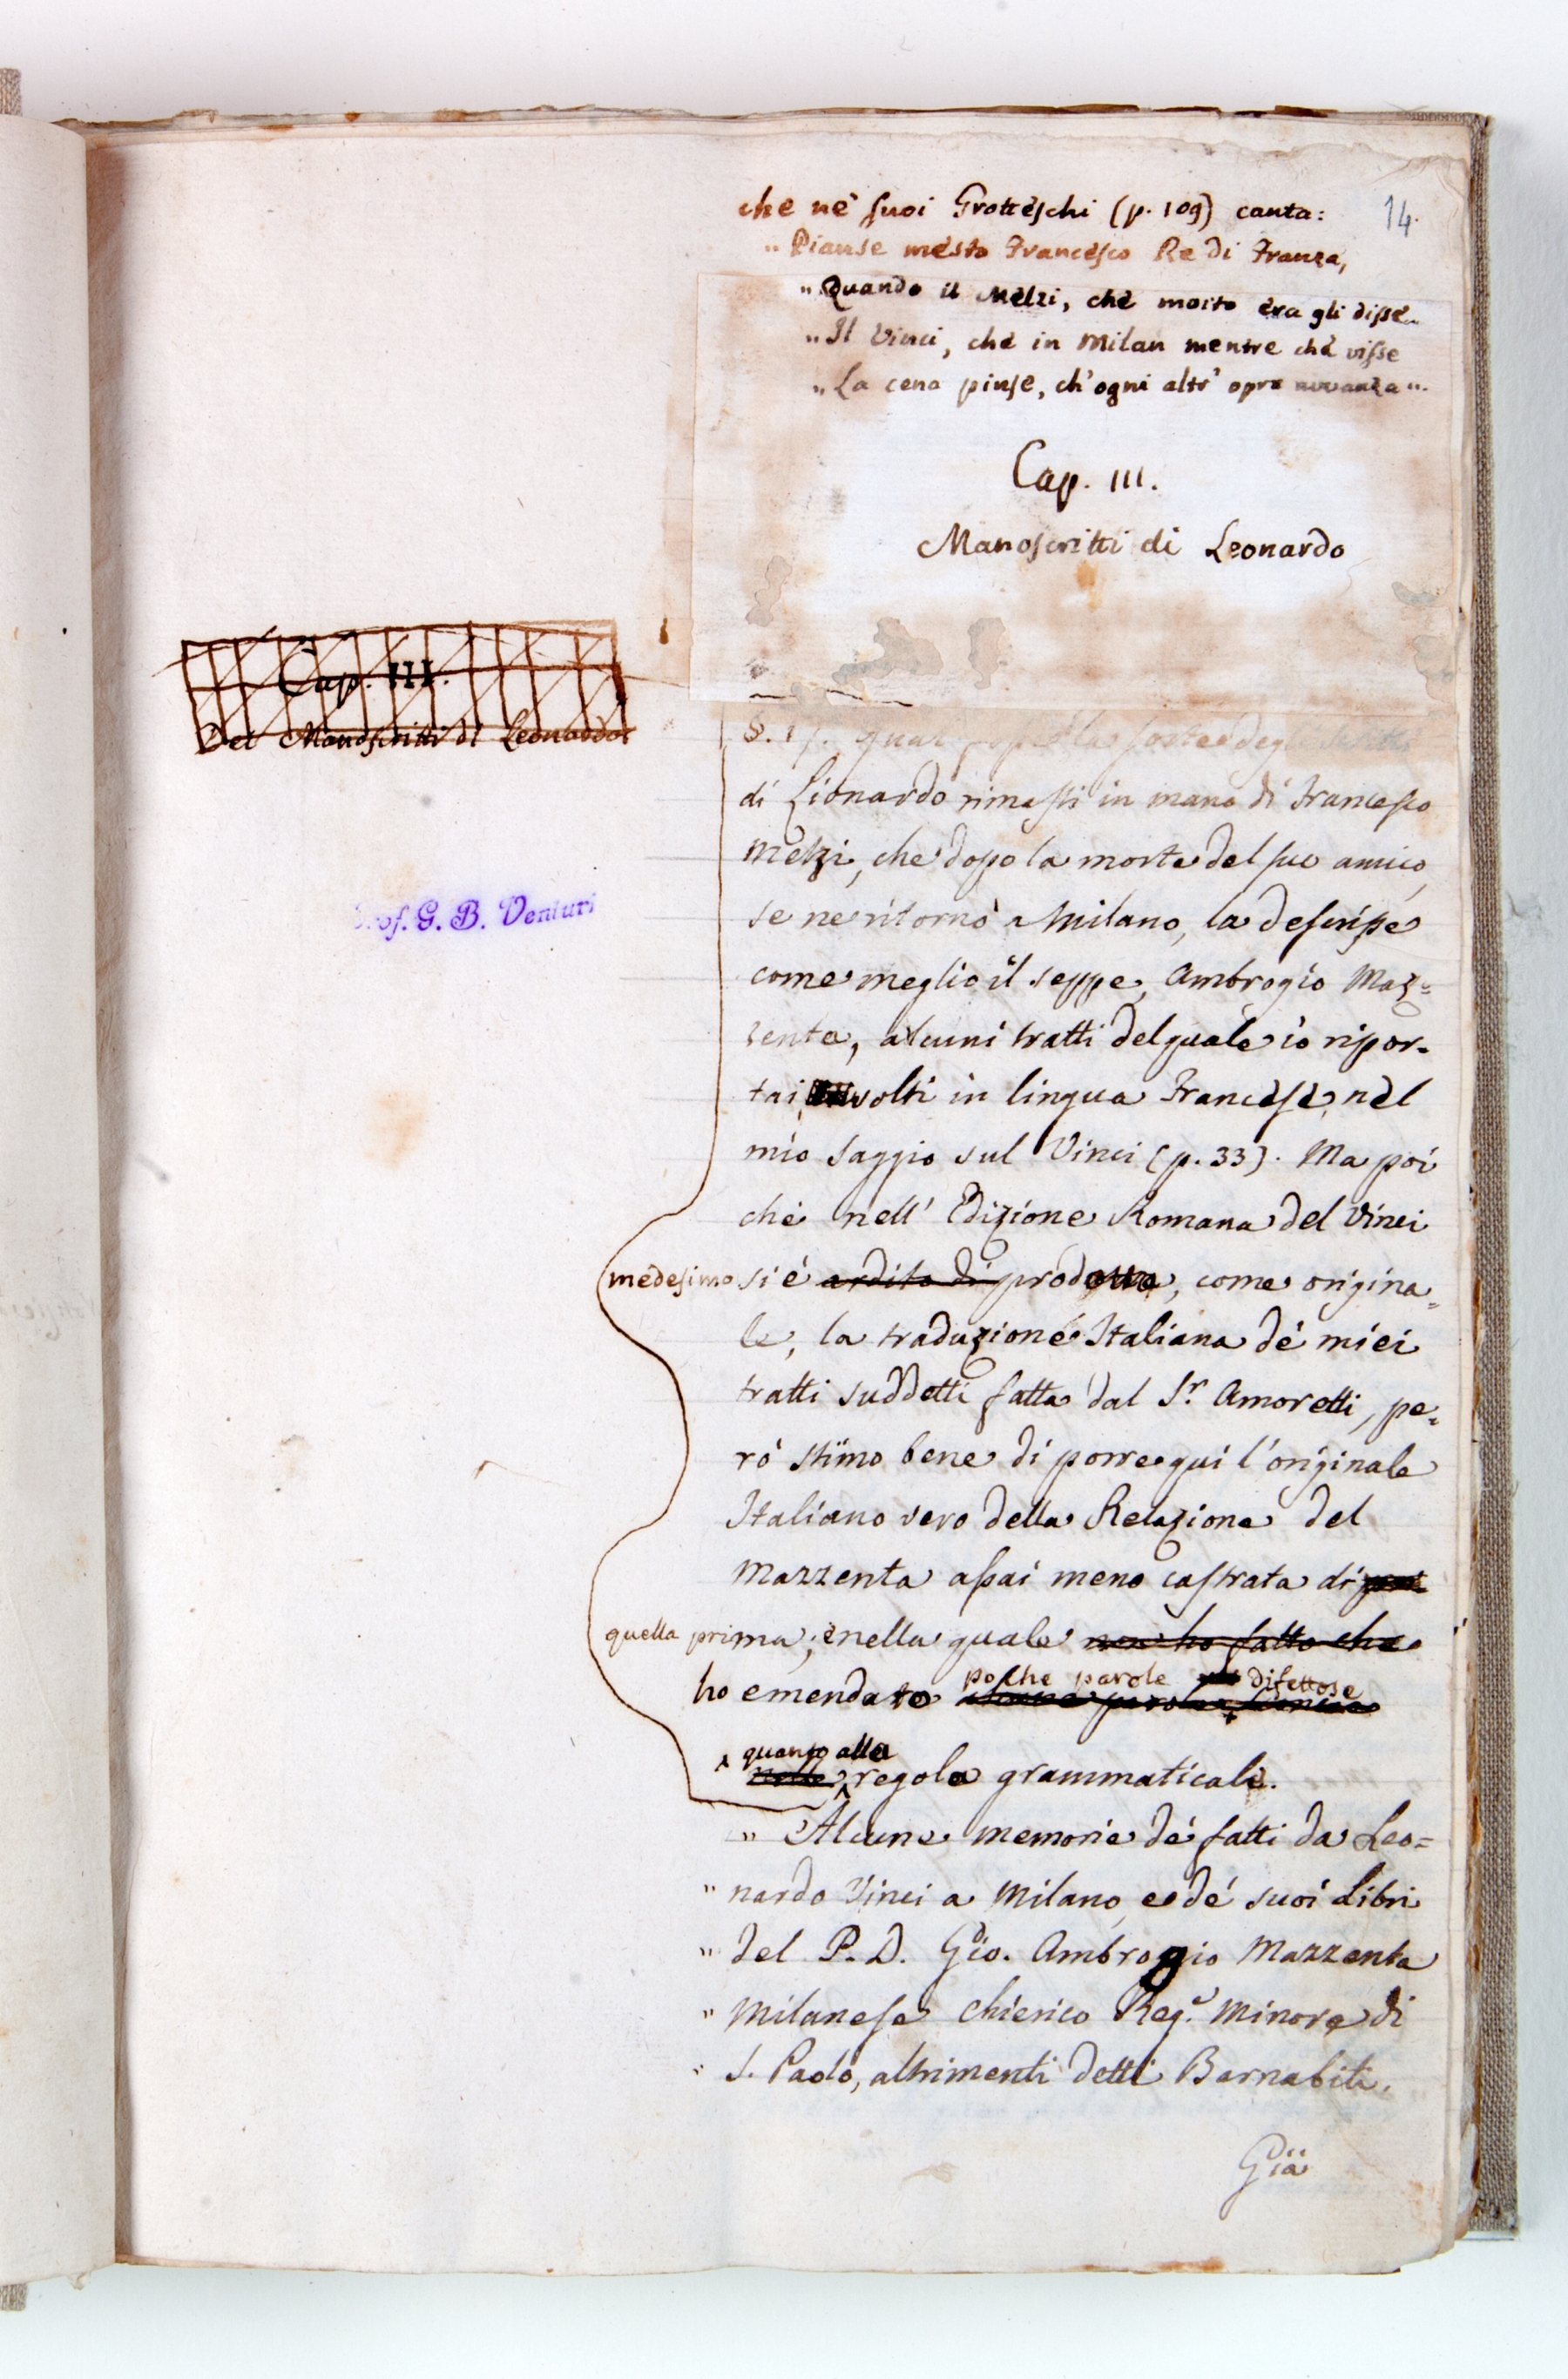 14.
che ne' suoi Grotteschi (p. 109) canta:
" Pianse mesto Francesco Re di Franza,
" Quando il Melzi, che morto era gli disse
" Il Vinci, che in Milan mentre che visse
" La cena pinse, ch'ogni altr' opra avvanza ".
Cap. III.
Manoscritti di Leonardo
Cap. III.
Dei Manoscritti di Leonardo
Prof. G. B. Venturi
§. Qual fosse la sorte degli
di Lionardo rimasti in mano di Francesco
Melzi, che dopo la morte del suo amico,
se ne ritornò a Milano, la descrisse
come meglio il seppe, Ambrogio Maz=
zenta, alcuni tratti del quale io ripor-
tai, volti in lingua Francese, nel
mio saggio sul Vinci (p. 33). Ma poi
chè nell' Edizione Romana del Vinci
medesimo si è ardito di prodotta, come origina=
le, la traduzione Italiana de' miei
tratti suddetti fatta dal Sr. Amoretti, pe=
rò stimo bene di porre qui l'originale
Italiano vero della Relazione del
Mazzenta assai meno castrata di
quella prima; e nella quale non ho fatto che
ho emendato poche parole difettose
quanto alla
regola grammaticale.
" Alcune memorie de' fatti da Leo=
" nardo Vinci a Milano, e de' suoi Libri
" del P. D. Gio. Ambrogio Mazzenta
" Milanese Chierico Reg.e Minore di
" S. Paolo, altrimenti detti Barnabiti.
Già